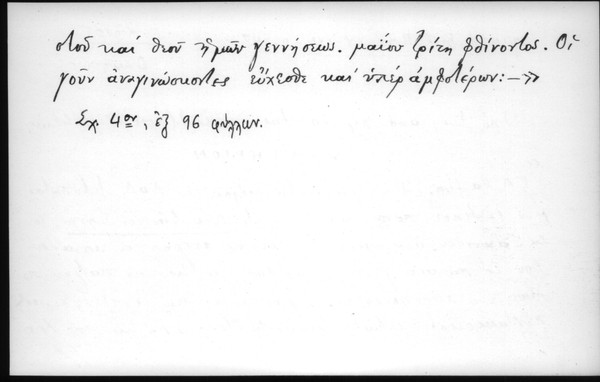 στοῦ καὶ θεοῦ ἡμῶν γεννήσεως. μαΐου τρίτῃ φθίνοντος. Οἱ
γοῦν ἀναγινώσκοντες εὔχεσθε καὶ ὑπὲρ ἀμφοτέρων:—»
Σχ. 4ον, ἐξ 96 φύλλων.